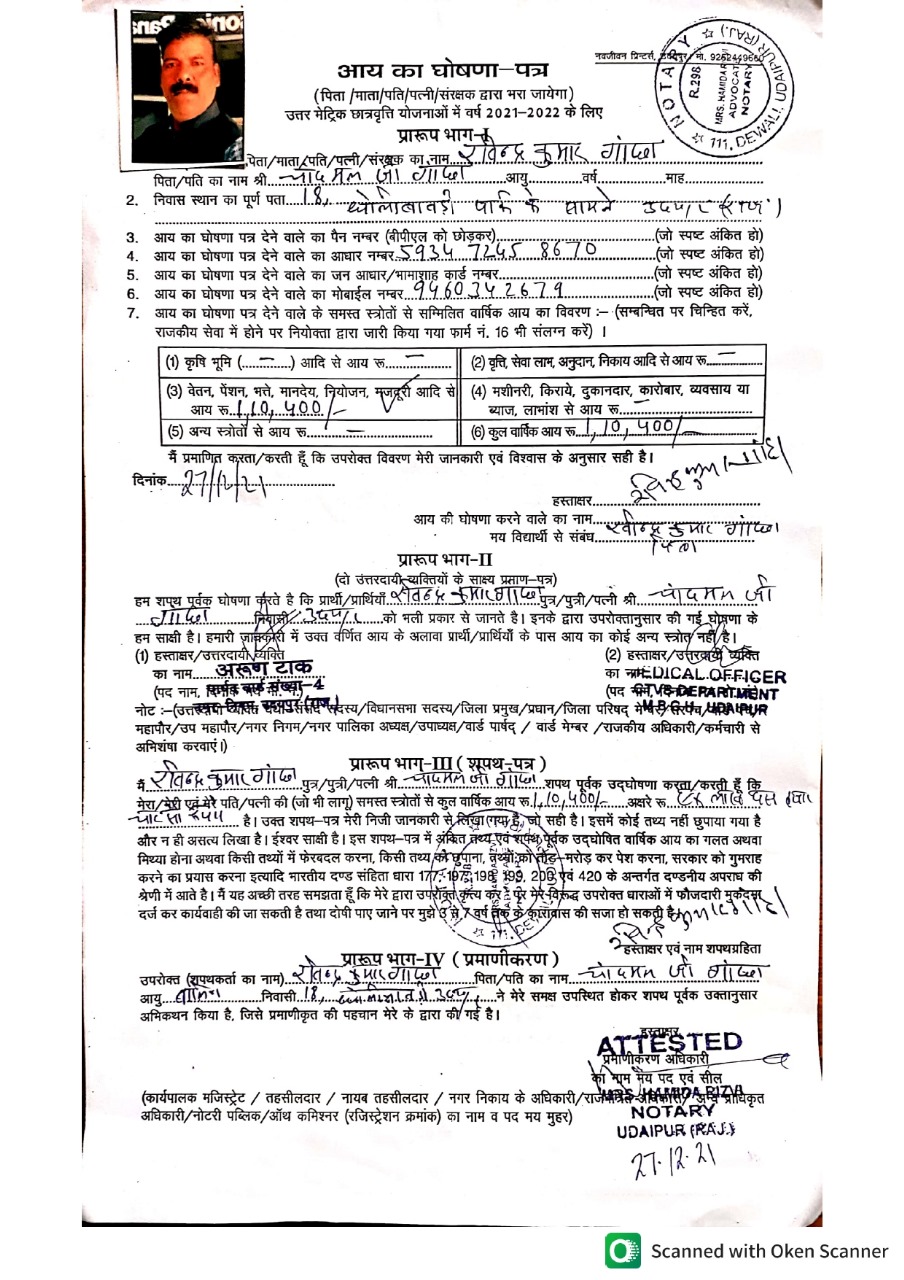 नवजीवन प्रिन्टर्स, उदयपुर/ मो. 9262449660
NOTARY ☆ (RAJ.) UDAIPUR ☆ 111, DEWALI
R.298
MRS. HAMIDA
ADVOCATE
NOTARY
आय का घोषणा–पत्र
(पिता /माता/पति/पत्नी/संरक्षक द्वारा भरा जायेगा)
उत्तर मेट्रिक छात्रवृत्ति योजनाओं में वर्ष 2021–2022 के लिए
प्रारूप भाग–I
पिता/माता/पति/पत्नी/संरक्षक का नाम रविन्द्र कुमार गांछा
पिता/पति का नाम श्री चांदमल जी गांछा आयु वर्ष माह
2. निवास स्थान का पूर्ण पता 18, पार्क के सामने उदयपुर (राज॰)
3. आय का घोषणा पत्र देने वाले का पैन नम्बर (बीपीएल को छोड़कर) (जो स्पष्ट अंकित हो)
4. आय का घोषणा पत्र देने वाले का आधार नम्बर 5934 7245 8670 (जो स्पष्ट अंकित हो)
5. आय का घोषणा पत्र देने वाले का जन आधार/भामाशाह कार्ड नम्बर (जो स्पष्ट अंकित हो)
6. आय का घोषणा पत्र देने वाले का मोबाईल नम्बर 9460342679 (जो स्पष्ट अंकित हो)
7. आय का घोषणा पत्र देने वाले के समस्त स्त्रोतों से सम्मिलित वार्षिक आय का विवरण :– (सम्बन्धित पर चिन्हित करें,
राजकीय सेवा में होने पर नियोक्ता द्वारा जारी किया गया फार्म नं. 16 भी संलग्न करें) ।
(1) कृषि भूमि (–) आदि से आय रू. –
(2) वृत्ति, सेवा लाभ, अनुदान, निकाय आदि से आय रू. –
(3) वेतन, पेंशन, भत्ते, मानदेय, नियोजन, मजदूरी आदि से
आय रू. 1,10,400/-
(4) मशीनरी, किराये, दुकानदार, कारोबार, व्यवसाय या
ब्याज, लाभांश से आय रू. –
(5) अन्य स्त्रोतों से आय रू. –
(6) कुल वार्षिक आय रू. 1,10,400/-
मैं प्रमाणित करता/करती हूँ कि उपरोक्त विवरण मेरी जानकारी एवं विश्वास के अनुसार सही है।
दिनांक 27/12/21
हस्ताक्षर
आय की घोषणा करने वाले का नाम रविन्द्र कुमार गांछा
मय विद्यार्थी से संबंध पिता
प्रारूप भाग-II
(दो उत्तरदायी व्यक्तियों के साक्ष्य प्रमाण–पत्र)
हम शपथ पूर्वक घोषणा करते है कि प्रार्थी/प्रार्थिया रविन्द्र कुमार गांछा पुत्र/पुत्री/पत्नी श्री चांदमल जी
गांछा निवासी उदयपुर को भली प्रकार से जानते है। इनके द्वारा उपरोक्तानुसार की गई घोषणा के
हम साक्षी है। हमारी जानकारी में उक्त वर्णित आय के अलावा प्रार्थी/प्रार्थिनी के पास आय का कोई अन्य स्त्रोत नहीं है।
(1) हस्ताक्षर/उत्तरदायी व्यक्ति
का नाम अरूण टाक
(पद नाम,
पार्षद वार्ड संख्या-4
(2) हस्ताक्षर/उत्तरदायी व्यक्ति
का नाम MEDICAL OFFICER
(पद नाम, DEPARTMENT
UDAIPUR
नोट :–(उत्तरदायी सदस्य/विधानसभा सदस्य/जिला प्रमुख/प्रधान/जिला परिषद् मेम्बर/सरपंच/
महापौर/उप महापौर/नगर निगम/नगर पालिका अध्यक्ष/उपाध्यक्ष/वार्ड पार्षद / वार्ड मेम्बर /राजकीय अधिकारी/कर्मचारी से
अभिशंषा करवाएं।)
प्रारूप भाग-III ( शपथ-पत्र )
मैं रविन्द्र कुमार गांछा पुत्र/पुत्री/पत्नी श्री चांदमल जी गांछा शपथ पूर्वक उद्घोषणा करता/करती हूँ कि
मेरा/मेरी एवं मेरे पति/पत्नी की (जो भी लागू) समस्त स्त्रोतों से कुल वार्षिक आय रू. 1,10,400/- अक्षरे रू. एक लाख दस हजार
चार सौ रूपया है। उक्त शपथ–पत्र मेरी निजी जानकारी से लिखा गया है, जो सही है। इसमें कोई तथ्य नहीं छुपाया गया है
और न ही असत्य लिखा है। ईश्वर साक्षी है। इस शपथ–पत्र में अंकित तथ्य एवं शपथ पूर्वक उद्घोषित वार्षिक आय का गलत अथवा
मिथ्या होना अथवा किसी तथ्यों में फेरबदल करना, किसी तथ्य को छुपाना, तथ्यों को तोड़–मरोड़ कर पेश करना, सरकार को गुमराह
करने का प्रयास करना इत्यादि भारतीय दण्ड संहिता धारा 177, 197, 198, 199, 200 एवं 420 के अन्तर्गत दण्डनीय अपराध की
श्रेणी में आते है। मैं यह अच्छी तरह समझता हूँ कि मेरे द्वारा उपरोक्त कृत्य करने पर मेरे विरूद्ध उपरोक्त धाराओं में फौजदारी मुकदमा
दर्ज कर कार्यवाही की जा सकती है तथा दोषी पाए जाने पर मुझे 3 से 7 वर्ष तक के कारावास की सजा हो सकती है।
हस्ताक्षर एवं नाम शपथग्रहिता
प्रारूप भाग-IV ( प्रमाणीकरण )
उपरोक्त (शपथकर्ता का नाम) रविन्द्र कुमार गांछा पिता/पति का नाम चांदमल जी गांछा
आयु बालिग निवासी 18, ने मेरे समक्ष उपस्थित होकर शपथ पूर्वक उक्तानुसार
अभिकथन किया है, जिसे प्रमाणीकृत की पहचान मेरे के द्वारा की गई है।
हस्ताक्षर
ATTESTED
प्रमाणीकरण अधिकारी
का नाम मय पद एवं सील
MRS. HAMIDA RIZVI
(कार्यपालक मजिस्ट्रेट / तहसीलदार / नायब तहसीलदार / नगर निकाय के अधिकारी/राजपत्रित अधिकारी/ अन्य प्राधिकृत
अधिकारी/नोटरी पब्लिक/ऑथ कमिश्नर (रजिस्ट्रेशन क्रमांक) का नाम व पद मय मुहर)
NOTARY
UDAIPUR (RAJ.)
27.12.21
Scanned with Oken Scanner